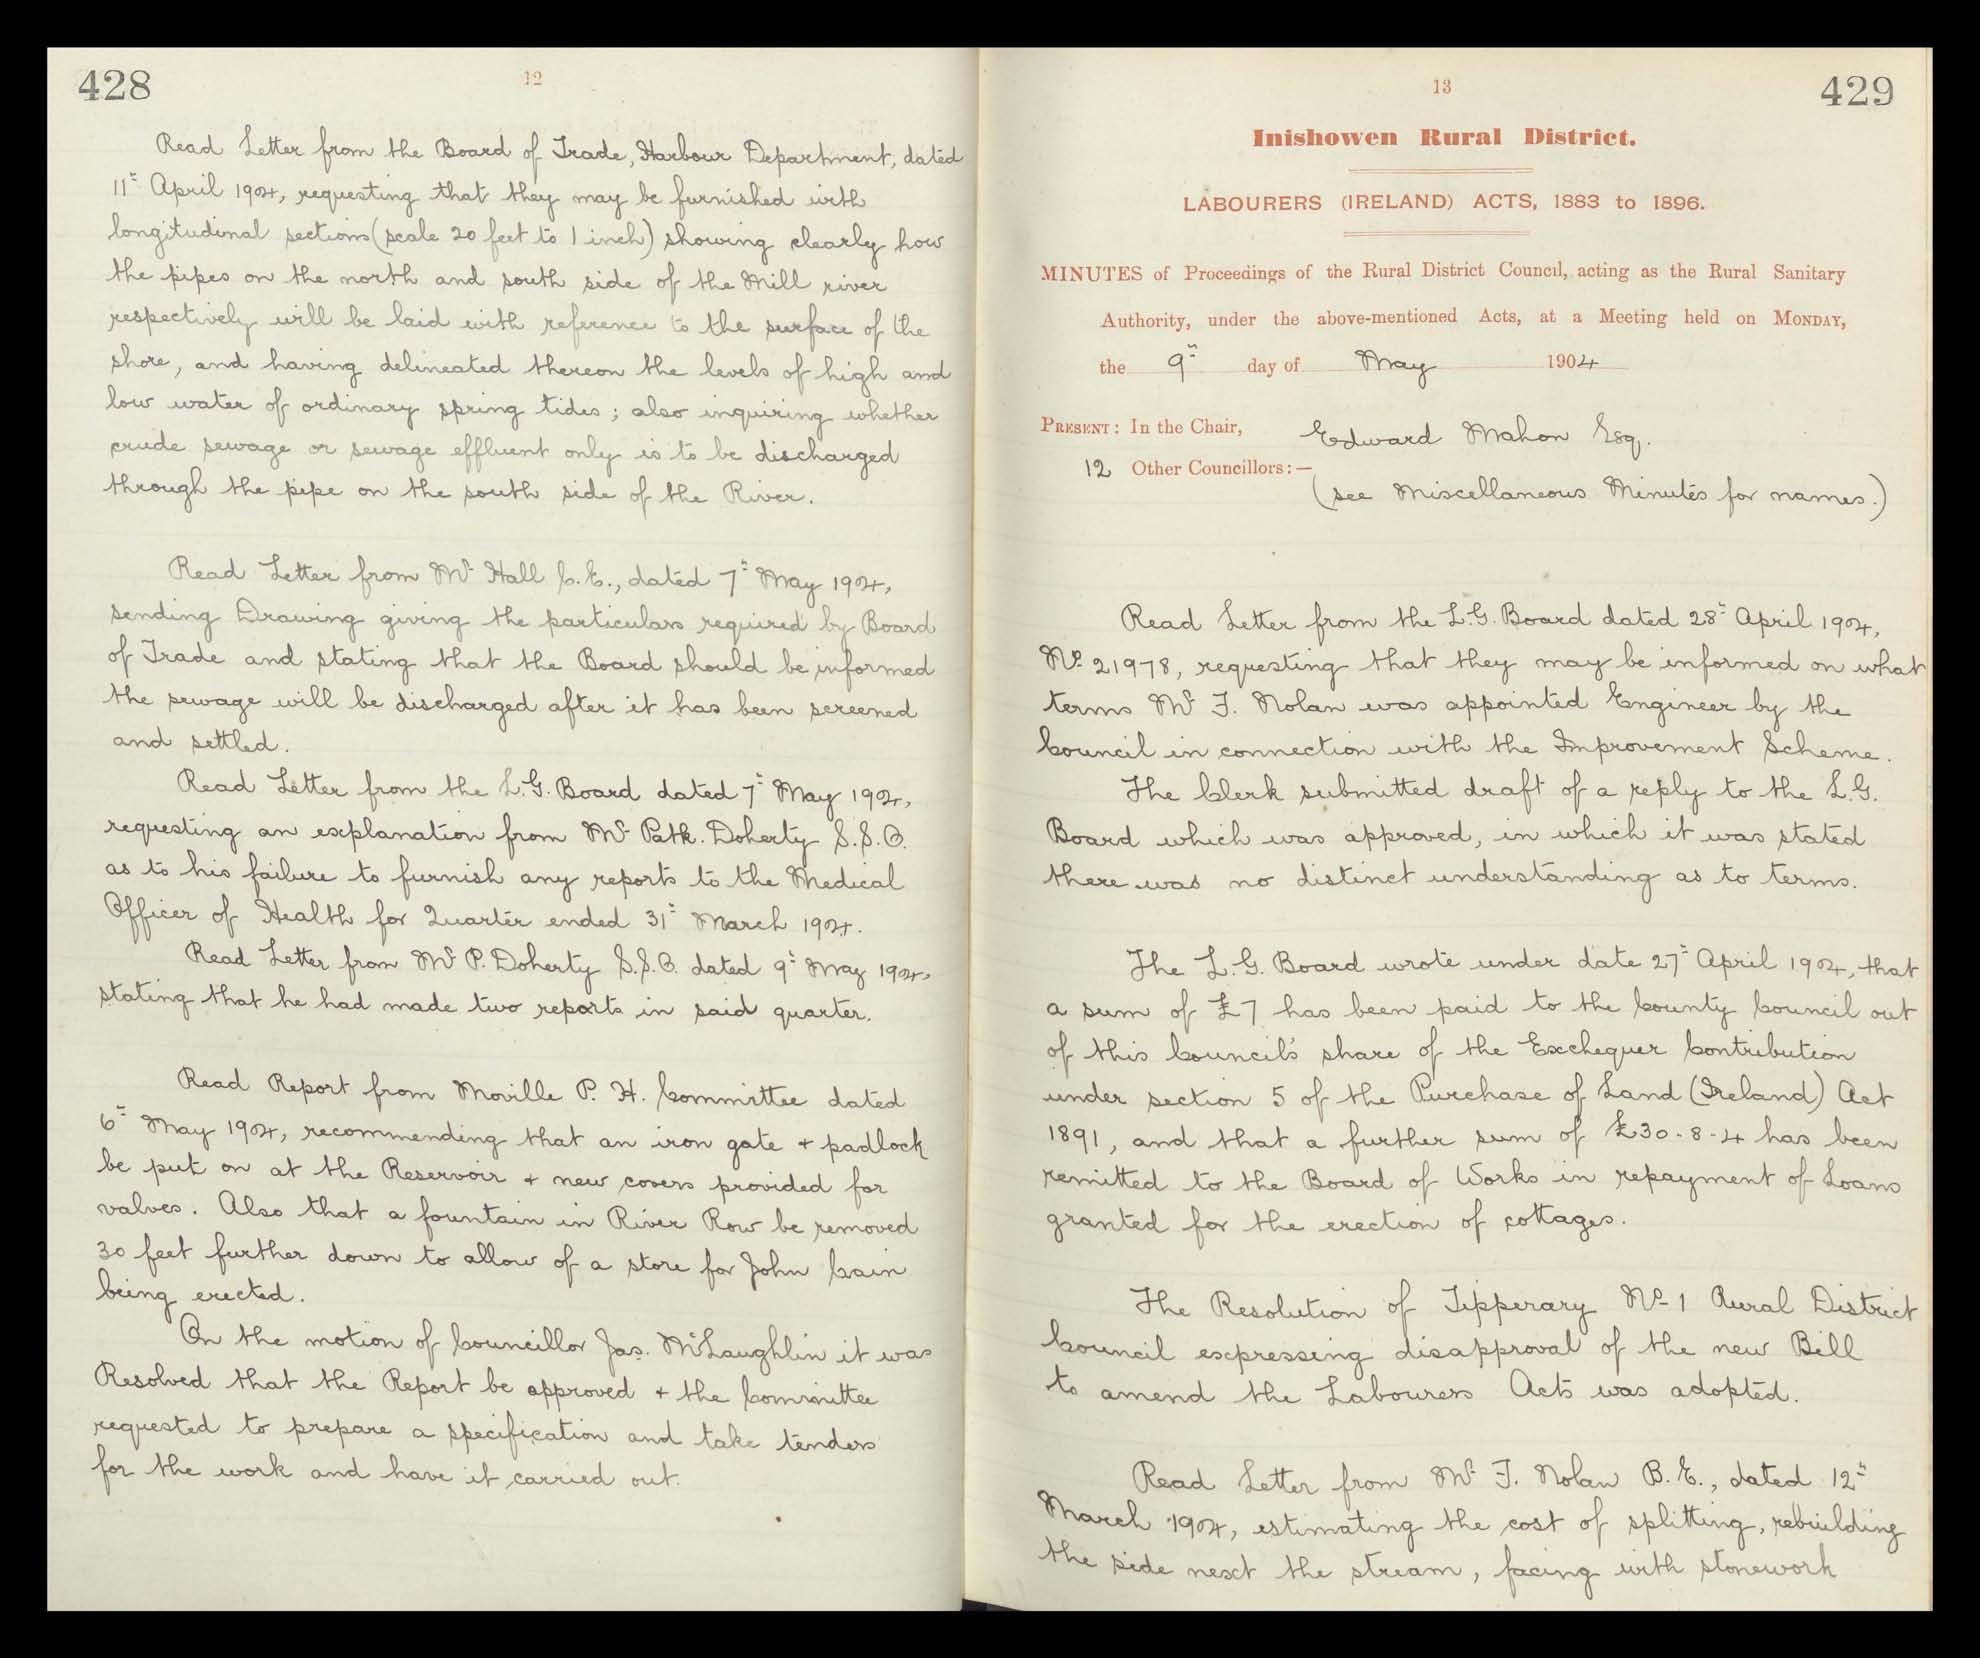 428
12
Read Letter from the Board of Trade, Harbour Department, dated
11th April 1904, requesting that they may be furnished with
longitudinal sections (scale 20 feet to 1 inch) showing clearly how
the pipes on the north and south side of the Mill river
respectively will be laid with reference to the surface of the
shore, and having delineated thereon the levels of high and
low water of ordinary spring tides; also inquiring whether
crude sewage or sewage effluent only is to be discharged
through the pipe on the south side of the River.
Read Letter from Mr Hall C.E., dated 7th May 1904,
sending Drawing giving the particulars required by Board
of Trade and stating that the Board should be informed
the sewage will be discharged after it has been screened
and settled.
Read Letter from the L.G. Board dated 7th May 1904,
requesting an explanation from Mr Patk. Doherty S.S.O.
as to his failure to furnish any reports to the Medical
Officer of Health for Quarter ended 31st March 1904.
Read Letter from Mr P. Doherty S.S.O. dated 9th May 1904,
stating that he had made two reports in said quarter.
Read Report from Moville P. H. Committee dated
6th May 1904, recommending that an iron gate + padlock
be put on at the Reservoir + new covers provided for
valves. Also that a fountain in River Row be removed
30 feet further down to allow of a store for John Cain
being erected.
On the motion of Councillor Jas. McLaughlin it was
Resolved that the Report be approved + the Committee
requested to prepare a specification and take tenders
for the work and have it carried out.
13
429
Inishowen Rural District.
LABOURERS (IRELAND) ACTS, 1883 to 1896.
MINUTES of Proceedings of the Rural District Council, acting as the Rural Sanitary
Authority, under the above-mentioned Acts, at a Meeting held on MONDAY,
the 9th day of May 1904
PRESENT: In the Chair, Edward Mahon Esq.
12 Other Councillors:—
(see Miscellaneous Minutes for names.)
Read Letter from the L.G. Board dated 28th April 1904,
No 21978, requesting that they may be informed on what
terms Mr F. Nolan was appointed Engineer by the
Council in connection with the Improvement Scheme.
The Clerk submitted draft of a reply to the L.G.
Board which was approved, in which it was stated
there was no distinct understanding as to terms.
The L.G. Board wrote under date 27th April 1904, that
a sum of £7 has been paid to the County Council out
of this Council's share of the Exchequer Contribution
under section 5 of the Purchase of Land (Ireland) Act
1891, and that a further sum of £30-8-4 has been
remitted to the Board of Works in repayment of Loans
granted for the erection of cottages.
The Resolution of Tipperary No 1 Rural District
Council expressing disapproval of the new Bill
to amend the Labourers Acts was adopted.
Read Letter from Mr F. Nolan B.E., dated 12th
March 1904, estimating the cost of splitting, rebuilding
the side next the stream, facing with stonework